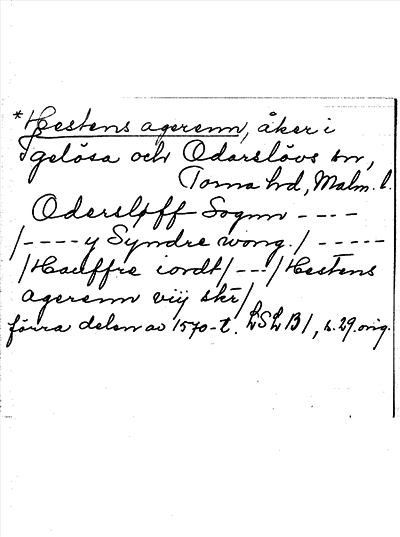 *Hestens agerenn, åker i
Igelösa och Odarslövs sn,
Torna hd, Malm. l.
Odersløff Sognn ----
/---- y Syndre wong./ -----
/Hauffre iordt/---/Hestens
agerenn viij skr/
förra delen av 1570-t. LSLB1, s. 29. orig.